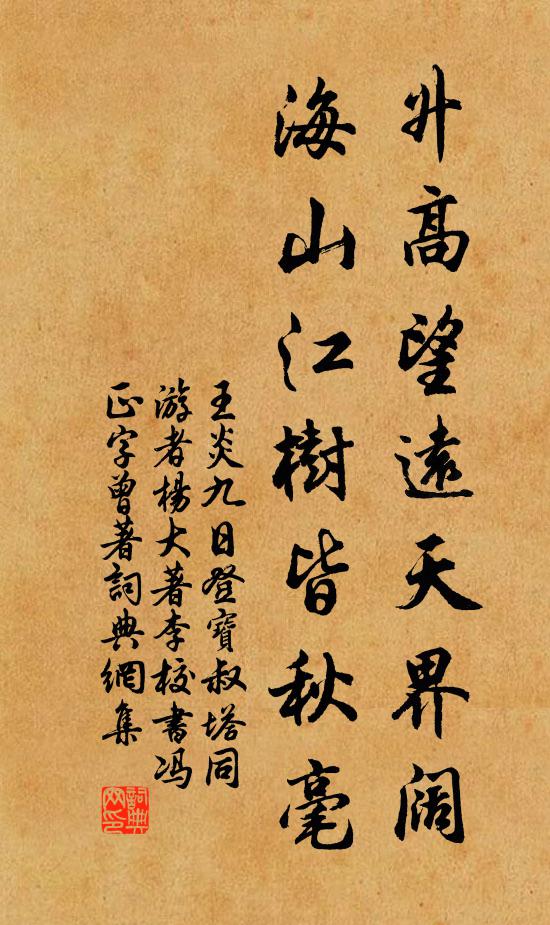 升高望遠天界闊
海山江樹皆秋毫
王炎九日登寶叔塔同
游者楊大著李校書馮
正字曾著詞典網集
詞典網印